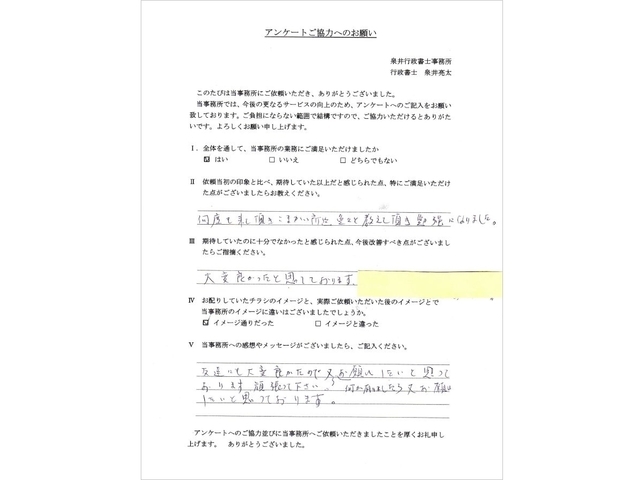 アンケートご協力へのお願い
泉井行政書士事務所
行政書士 泉井亮太
このたびは当事務所にご依頼いただき、ありがとうございました。
当事務所では、今後の更なるサービスの向上のため、アンケートへのご記入をお願い
致しております。ご負担にならない範囲で結構ですので、ご協力いただけるとありがた
いです。よろしくお願い申し上げます。
Ⅰ．全体を通して、当事務所の業務にご満足いただけましたか
☑ はい □ いいえ □ どちらでもない
Ⅱ 依頼当初の印象と比べ、期待していた以上だと感じられた点、特にご満足いただけ
た点がございましたらお教えください。
何度も来て頂きこまかい所迄 色々と教えて頂き勉強になりました。
Ⅲ 期待していたのに十分でなかったと感じられた点、今後改善すべき点がございまし
たらご指摘ください。
大変良かったと思っております。
Ⅳ お配りしていたチラシのイメージと、実際ご依頼いただいた後のイメージとで
当事務所のイメージに違いはございましたでしょうか。
☑ イメージ通りだった □ イメージと違った
Ⅴ 当事務所への感想やメッセージがございましたら、ご記入ください。
友達にも大変良かったので 又お願いしたいと思って
おります 頑張って下さい 何か有りましたら又お願い
したいと思っております。
アンケートへのご協力並びに当事務所へご依頼いただきましたことを厚くお礼申し
上げます。 ありがとうございました。